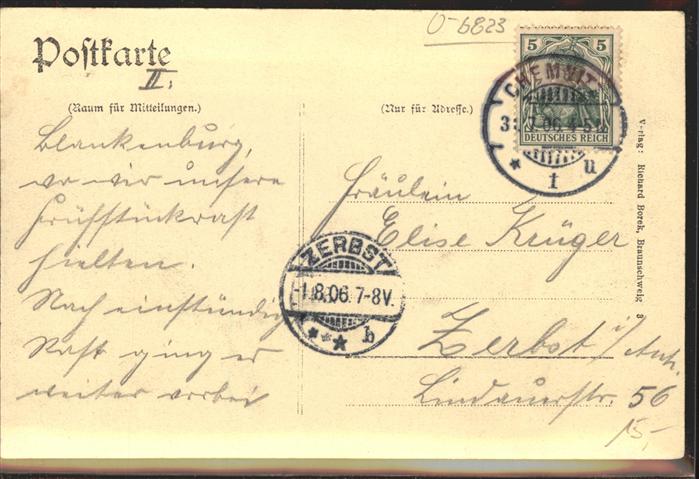 O-6823
Postkarte
II.
(Raum für Mitteilungen.)
(Nur für Adresse.)
5 5
DEUTSCHES REICH
CHEMNITZ
7.06.4-5
* 1 u
Blankenburg,
wo wir unsere
Frühstückrast
hielten.
Nach einstündig
Rast ging es
weiter vorbei
ZERBST
-1.8.06.7-8V.
*** b
Fräulein
Elise Krüger
Zerbst i/Anh.
Lindauerstr. 56
15,-
Verlag: Richard Borek, Braunschweig